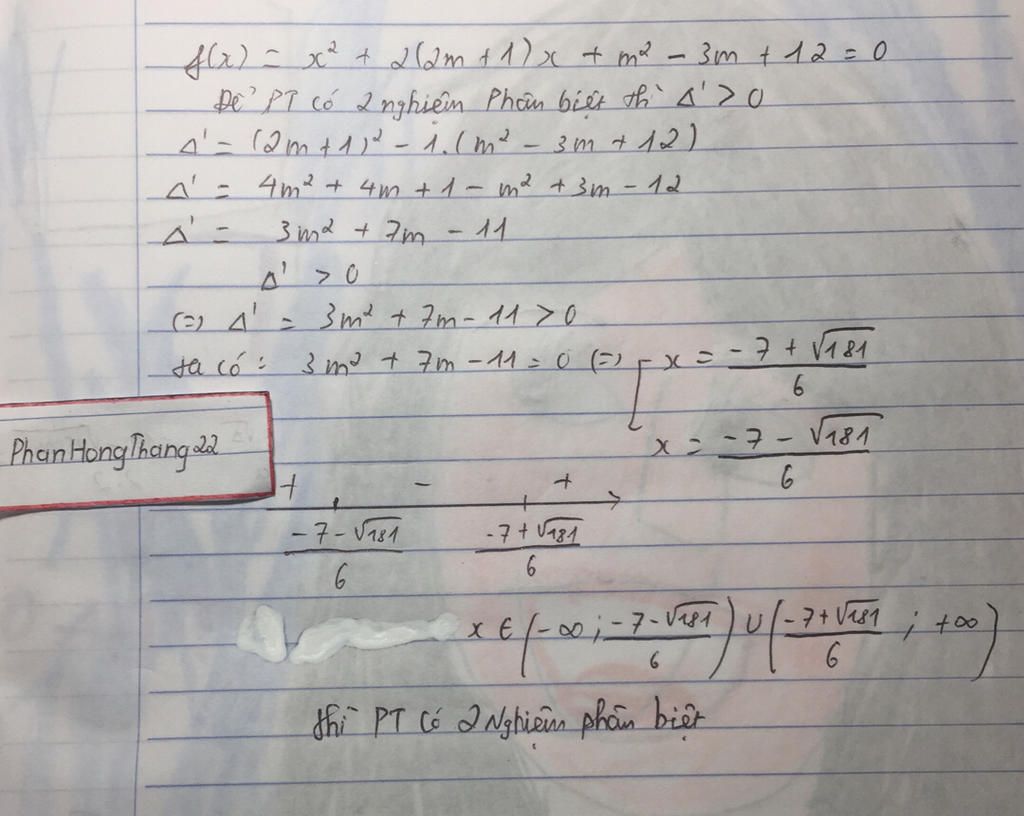 f(x) = x² + 2(2m + 1)x + m² - 3m + 12 = 0
Để PT có 2 nghiệm Phân biệt thì Δ' > 0
Δ' = (2m + 1)² - 1.(m² - 3m + 12)
Δ' = 4m² + 4m + 1 - m² + 3m - 12
Δ' = 3m² + 7m - 11
Δ' > 0
(=) Δ' = 3m² + 7m - 11 > 0
ta có: 3m² + 7m - 11 = 0 (=) [ x = (-7 + √181)/6
x = (-7 - √181)/6
PhanHongThang22
+ - +
(-7 - √181)/6 (-7 + √181)/6
x ∈ (-∞ ; (-7 - √181)/6) ∪ ((-7 + √181)/6 ; +∞)
thì PT Có 2 Nghiệm phân biệt